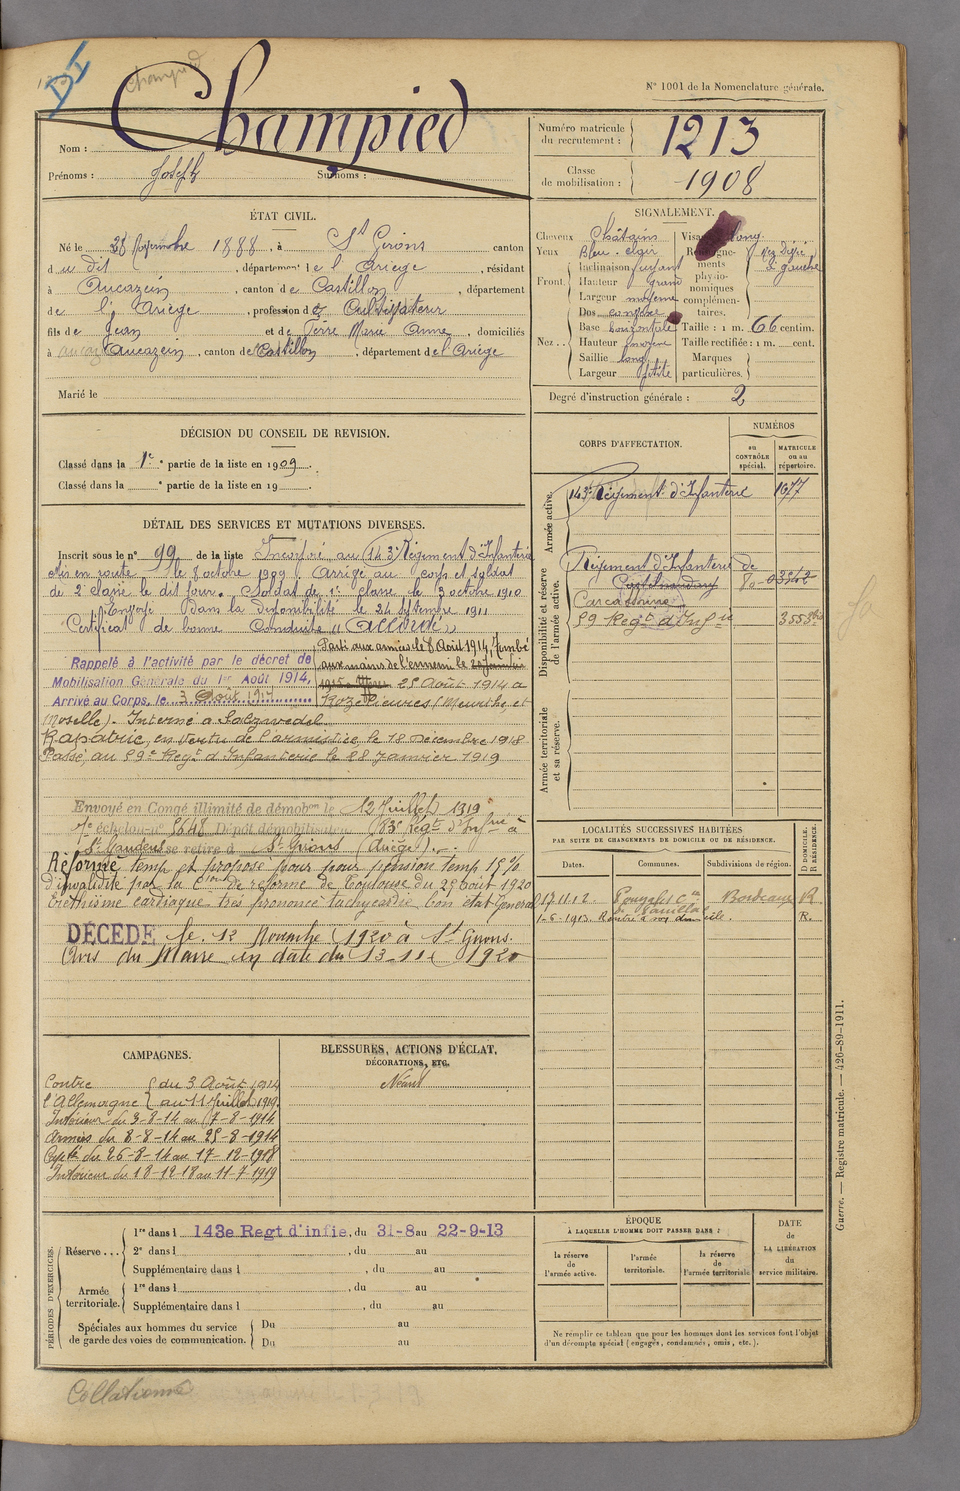 Champied
N° 1001 de la Nomenclature générale.
Nom : Champied
Prénoms : Joseph Surnoms :
Numéro matricule du recrutement : 1213
Classe de mobilisation : 1908
ÉTAT CIVIL.
Né le 28 Novembre 1888, à St Girons canton
du dit, département de l'Ariège, résidant
à Aucazein, canton de Castillon, département
de l'Ariège, profession de Cultivateur
fils de Jean et de Pierre Marie Anne, domiciliés
à Aucazein, canton de Castillon, département de l'Ariège
Marié le
SIGNALEMENT.
Cheveux Châtains
Yeux Bleu clair
Front. Inclinaison fuyant
Hauteur grand
Largeur moyenne
Nez. Dos
Base horizontale
Hauteur moyenne
Saillie long
Largeur petite
Visage long
Renseignements physionomiques complémentaires. Nez dévié à gauche
Taille : 1 m. 66 centim.
Taille rectifiée : 1 m. cent.
Marques particulières.
Degré d'instruction générale : 2
DÉCISION DU CONSEIL DE REVISION.
Classé dans la 1re partie de la liste en 1909.
Classé dans la e partie de la liste en 19
DÉTAIL DES SERVICES ET MUTATIONS DIVERSES.
Inscrit sous le n° 99 de la liste Incorporé au 143e Régiment d'Infanterie
Mis en route le 8 octobre 1909. Arrivé au corps et soldat
de 2e classe le dit jour. Soldat de 1e classe le 3 octobre 1910
Envoyé dans la disponibilité le 24 septembre 1911
Certificat de bonne conduite "Accordé"
Rappelé à l'activité par le décret de
Mobilisation Générale du 1er Août 1914,
Arrivé au Corps, le 3 Août 1914
Parti aux armées le 8 Août 1914, Tombé
aux mains de l'ennemi le
25 Août 1914 à
Rozelieures (Meurthe et
Moselle). Interné à Salzwedel
Rapatrié, en vertu de l'armistice le 18 Décembre 1918
Passé, au 59e Regt d'Infanterie le 28 Janvier 1919
Envoyé en Congé illimité de démobon le 12 Juillet 1919
7e échelon n° 5648 Dépôt démobilisateur 83e Regt d'Infrie à
St Gaudens se retire à St Girons (Ariège).
Réformé temp et proposé pour pension temp 15%
d'invalidité par la Cion de réforme de Toulouse du 29 Août 1920
Eréthisme cardiaque très prononcé tachycardie bon état Général
DÉCÉDÉ le 12 Novembre 1920 à St Girons.
Avis du Maire en date du 13-11-1920
CORPS D'AFFECTATION.
NUMÉROS
au CONTRÔLE spécial.
MATRICULE ou au répertoire.
Armée active.
143e Régiment d'Infanterie 1077
Disponibilité et réserve de l'armée active.
Régiment d'Infanterie de
Castelnaudary 03542
Carcassonne
59 Regt d'Infie
Armée territoriale et sa réserve.
LOCALITÉS SUCCESSIVES HABITÉES
PAR SUITE DE CHANGEMENTS DE DOMICILE OU DE RÉSIDENCE.
Dates. Communes. Subdivisions de région. D DOMICILE. R RÉSIDENCE.
17.11.12 Bordeaux R
1-6-1913 Rentré à son domicile. R.
CAMPAGNES.
Contre l'Allemagne du 3 Août 1914
au 11 Juillet 1919.
Intérieur du 3-8-14 au 7-8-1914
Armées du 8-8-14 au 25-8-1914
Capté du 26-8-14 au 17-12-1918
Intérieur du 18-12-18 au 11-7-1919
BLESSURES, ACTIONS D'ÉCLAT, DÉCORATIONS, ETC.
Néant
PÉRIODES D'EXERCICES.
Réserve... 1re dans l 143e Regt d'infie, du 31-8 au 22-9-13
2e dans l , du au
Supplémentaire dans l , du au
Armée territoriale. 1re dans l , du au
Supplémentaire dans l , du au
Spéciales aux hommes du service de garde des voies de communication. Du au
Du au
ÉPOQUE
À LAQUELLE L'HOMME DOIT PASSER DANS :
la réserve de l'armée active.
l'armée territoriale.
la réserve de l'armée territoriale
DATE de LA LIBÉRATION du service militaire.
Ne remplir ce tableau que pour les hommes dont les services font l'objet
d'un décompte spécial (engagés, condamnés, omis, etc.).
Guerre. — Registre matricule. — 426-89-1911.
Collationné